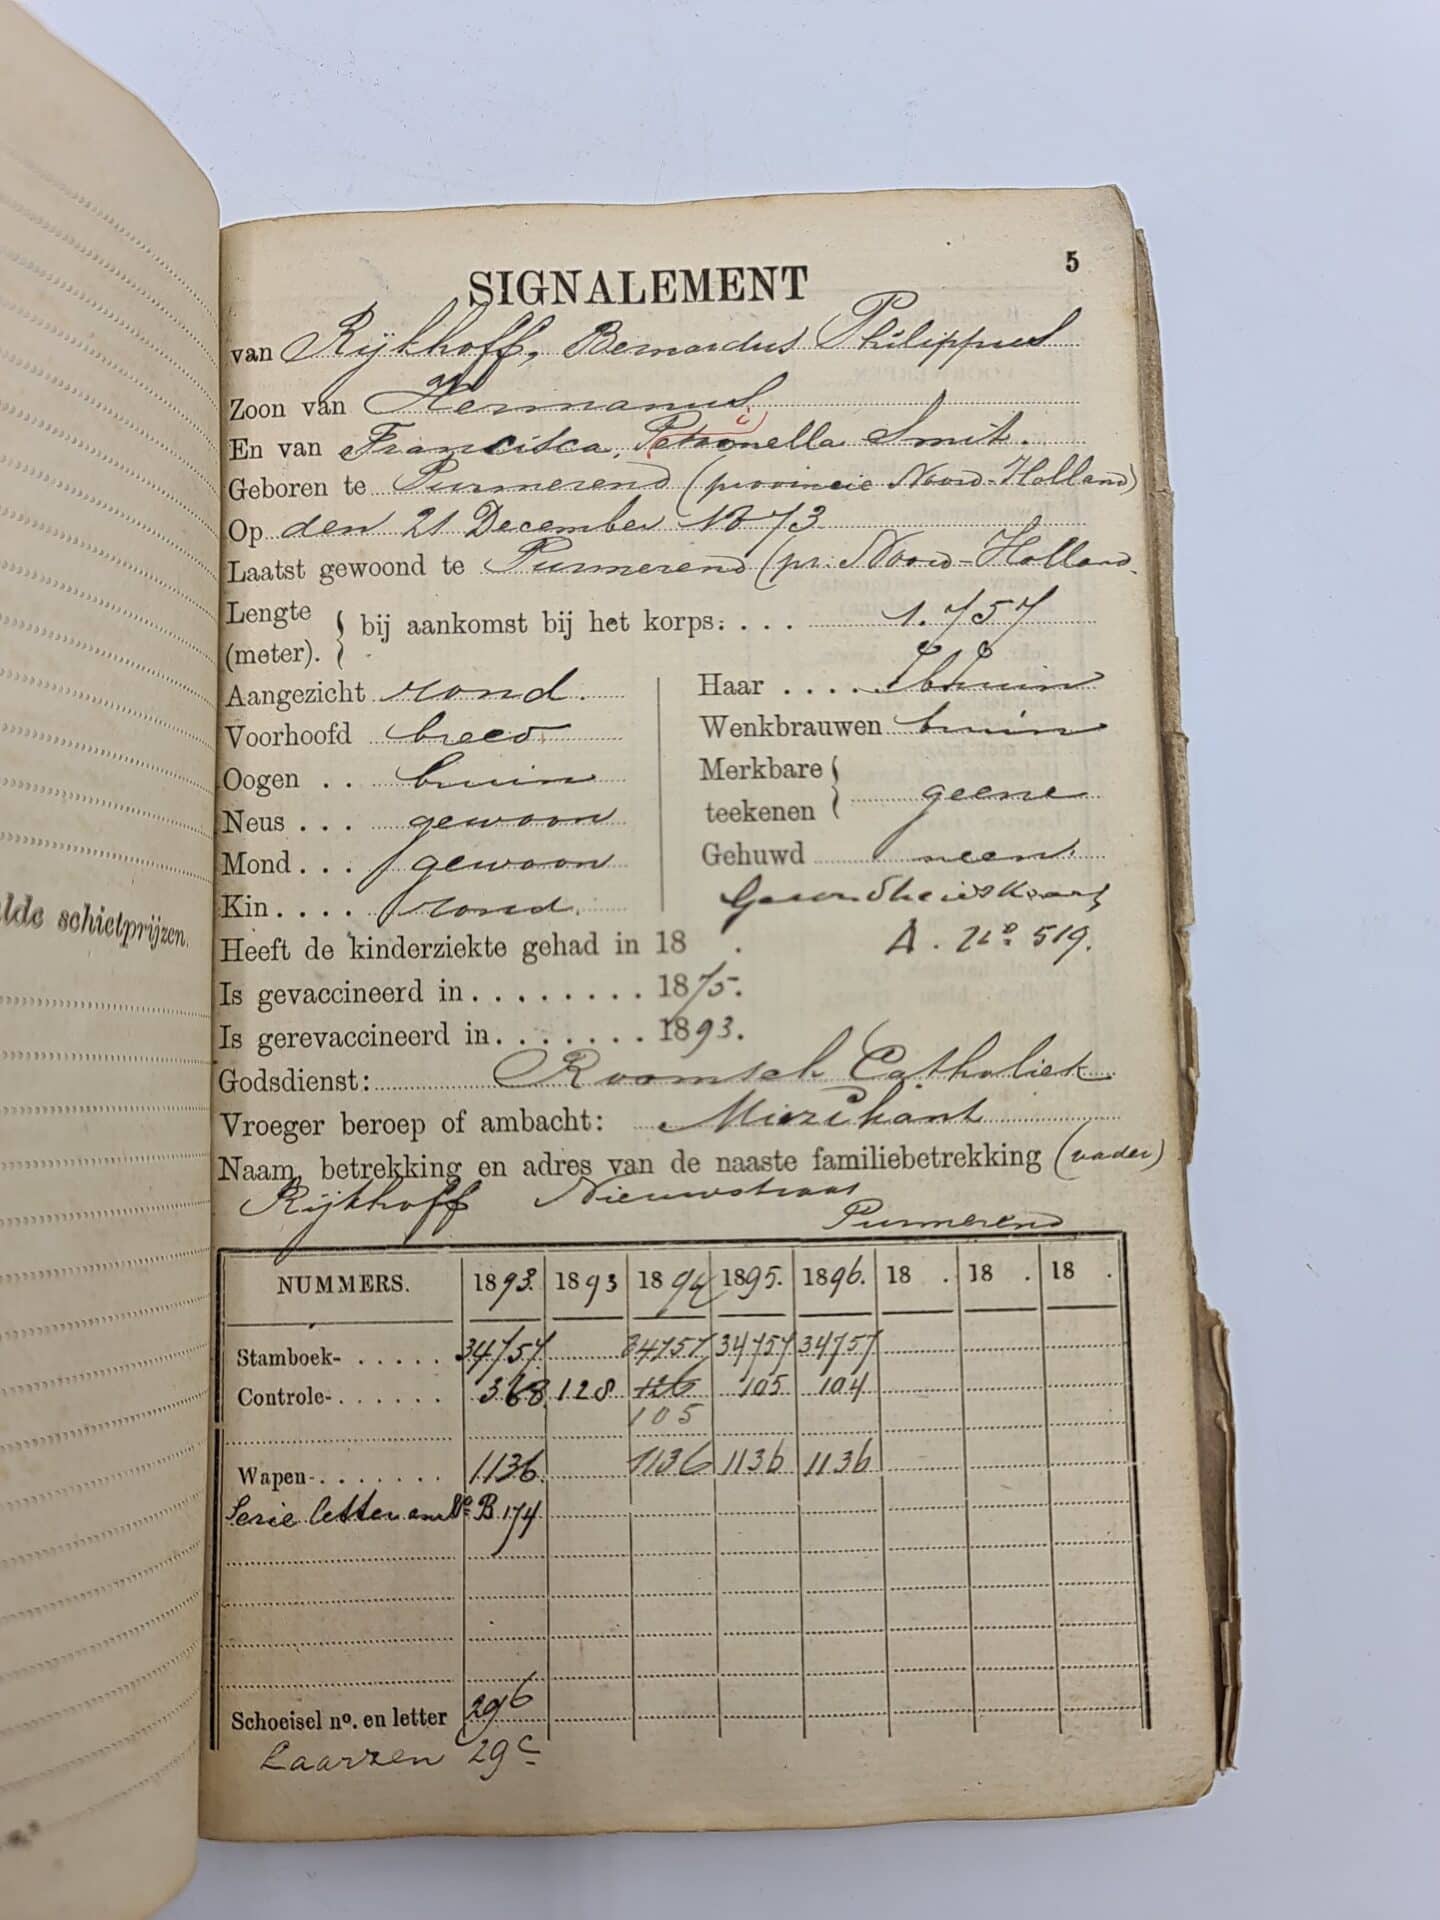 5
SIGNALEMENT
van Rijkhoff, Bernardus Philippus
Zoon van Hermanus
En van Francisca, Petronella Smit.
i
Geboren te Purmerend (provincie Noord-Holland)
Op den 21 December 1873
Laatst gewoond te Purmerend (pr. Noord-Holland.
Lengte (meter). } bij aankomst bij het korps: . . . 1.757
Aangezicht rond. Haar .... bruin
Voorhoofd breed Wenkbrauwen bruin
Oogen .. bruin Merkbare teekenen } geene
Neus ... gewoon
Mond ... gewoon Gehuwd neen.
Kin .... rond.
Heeft de kinderziekte gehad in 18 . A. No. 519.
Is gevaccineerd in ........ 1875.
Is gerevaccineerd in ....... 1893.
Godsdienst: Roomsch Catholiek
Vroeger beroep of ambacht: Muzikant
Naam, betrekking en adres van de naaste familiebetrekking (vader)
Rijkhoff Nieuwstraat
Purmerend
NUMMERS. 1893. 1893 1894 1895. 1896. 18 . 18 . 18 .
Stamboek- ..... 34757. 34757 34757 34757
Controle- ...... 368 128 126 105 104
105
Wapen- ....... 1136. 1136 1136 1136
Serie letter en No B.174
Schoeisel no. en letter 296
Laarzen 29c
lde schietprijzen.